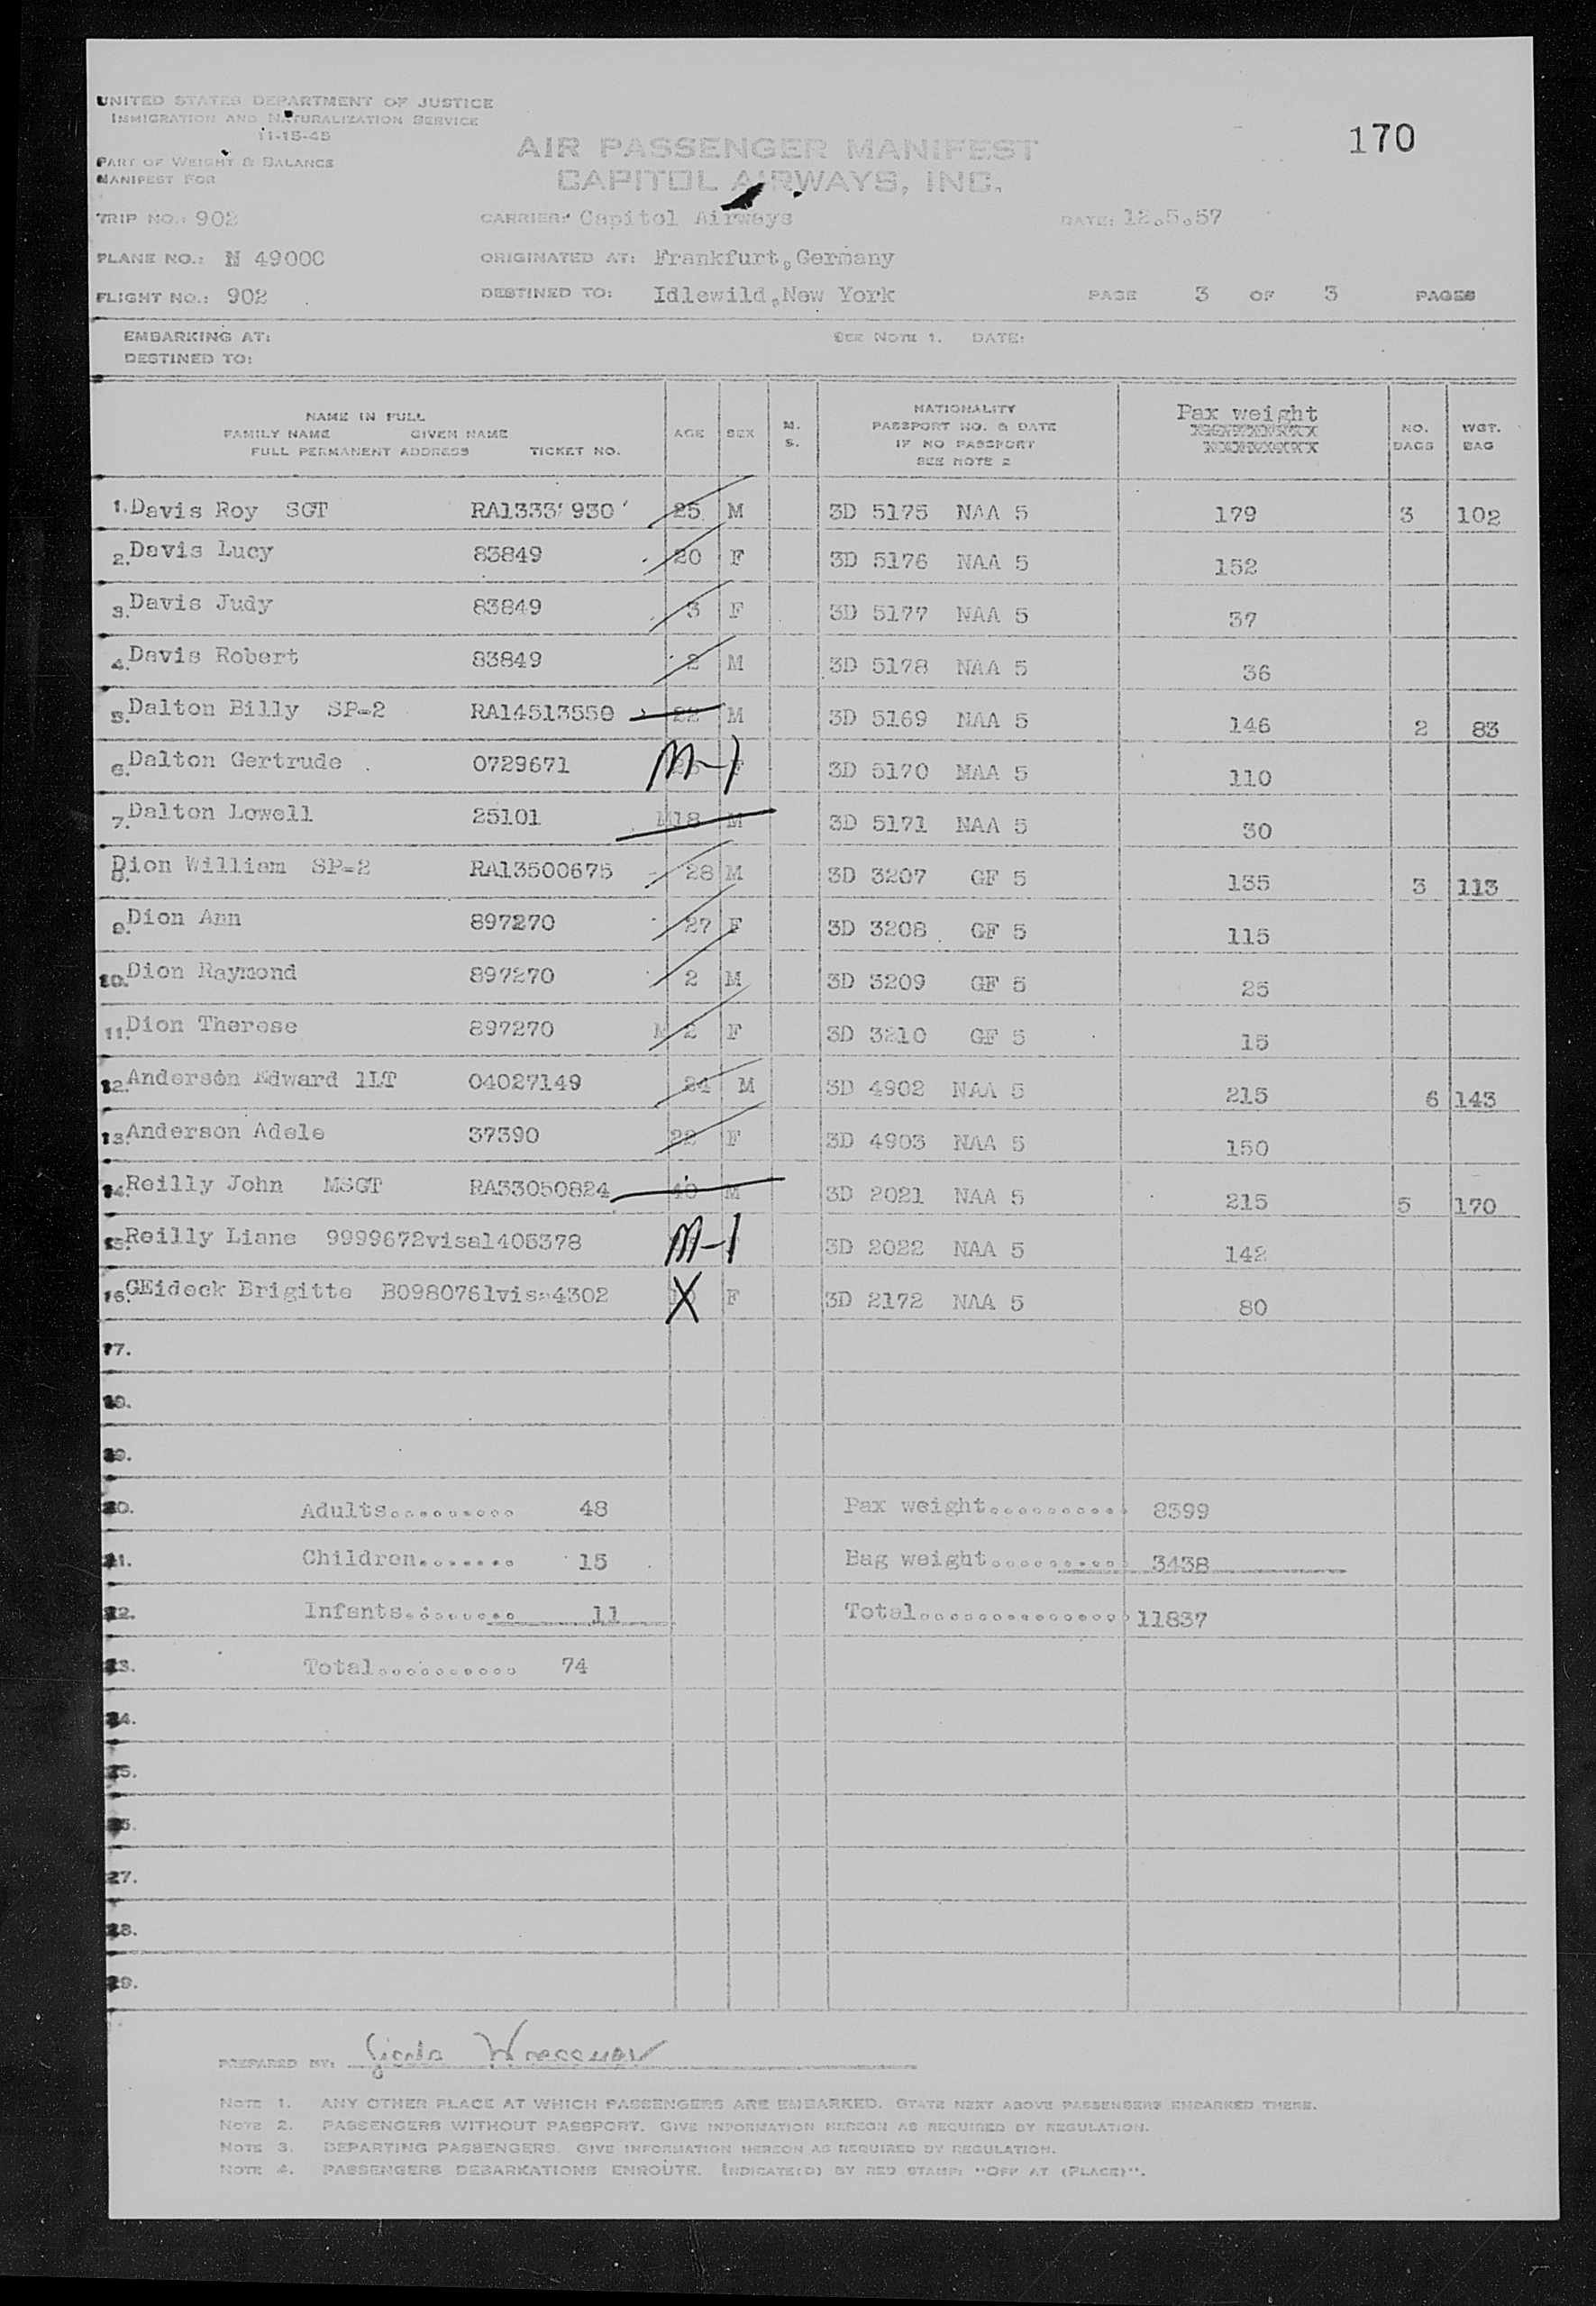 UNITED STATES DEPARTMENT OF JUSTICE
IMMIGRATION AND NATURALIZATION SERVICE
11-15-45
170
AIR PASSENGER MANIFEST
CAPITOL AIRWAYS, INC.
PART OF WEIGHT & BALANCE
MANIFEST FOR
TRIP NO.: 902 CARRIER: Capitol Airways DATE: 12.5.57
PLANE NO.: N 4900C ORIGINATED AT: Frankfurt,Germany
FLIGHT NO.: 902 DESTINED TO: Idlewild,New York PAGE 3 OF 3 PAGES
EMBARKING AT: SEE NOTE 1. DATE:
DESTINED TO:
NAME IN FULL
FAMILY NAME GIVEN NAME
FULL PERMANENT ADDRESS TICKET NO.
AGE SEX M. S.
NATIONALITY
PASSPORT NO. & DATE
IF NO PASSPORT
SEE NOTE 2
Pax weight
NO. BAGS
WGT. BAG
1. Davis Roy SGT RA1333'930' 25 M 3D 5175 NAA 5 179 3 102
2. Davis Lucy 83849 20 F 3D 5176 NAA 5 152
3. Davis Judy 83849 3 F 3D 5177 NAA 5 37
4. Davis Robert 83849 2 M 3D 5178 NAA 5 36
5. Dalton Billy SP=2 RA14513550 22 M 3D 5169 NAA 5 146 2 83
6. Dalton Gertrude 0729671 M-1 3D 5170 NAA 5 110
7. Dalton Lowell 25101 M18 M 3D 5171 NAA 5 30
8. Dion William SP=2 RA13500675 28 M 3D 3207 GF 5 135 3 113
9. Dion Ann 897270 27 F 3D 3208 GF 5 115
10. Dion Raymond 897270 2 M 3D 3209 GF 5 25
11. Dion Therese 897270 M 2 F 3D 3210 GF 5 15
12. Anderson Edward 1LT 04027149 24 M 3D 4902 NAA 5 215 6 143
13. Anderson Adele 37390 22 F 3D 4903 NAA 5 150
14. Reilly John MSGT RA33050824 40 M 3D 2021 NAA 5 215 5 170
15. Reilly Liane 9999672visa1405378 M-1 3D 2022 NAA 5 142
16. GEideck Brigitte B0980761visa4302 X F 3D 2172 NAA 5 80
17.
18.
19.
20. Adults.......... 48 Pax weight.......... 8399
21. Children....... 15 Bag weight.......... 3438
22. Infants........ 11 Total............... 11837
23. Total.......... 74
24.
25.
26.
27.
28.
29.
PREPARED BY:
NOTE 1. ANY OTHER PLACE AT WHICH PASSENGERS ARE EMBARKED. STATE NEXT ABOVE PASSENGERS EMBARKED THERE.
NOTE 2. PASSENGERS WITHOUT PASSPORT. GIVE INFORMATION HEREON AS REQUIRED BY REGULATION.
NOTE 3. DEPARTING PASSENGERS. GIVE INFORMATION HEREON AS REQUIRED BY REGULATION.
NOTE 4. PASSENGERS DEBARKATIONS ENROUTE. INDICATE(D) BY RED STAMP: "OFF AT (PLACE)".